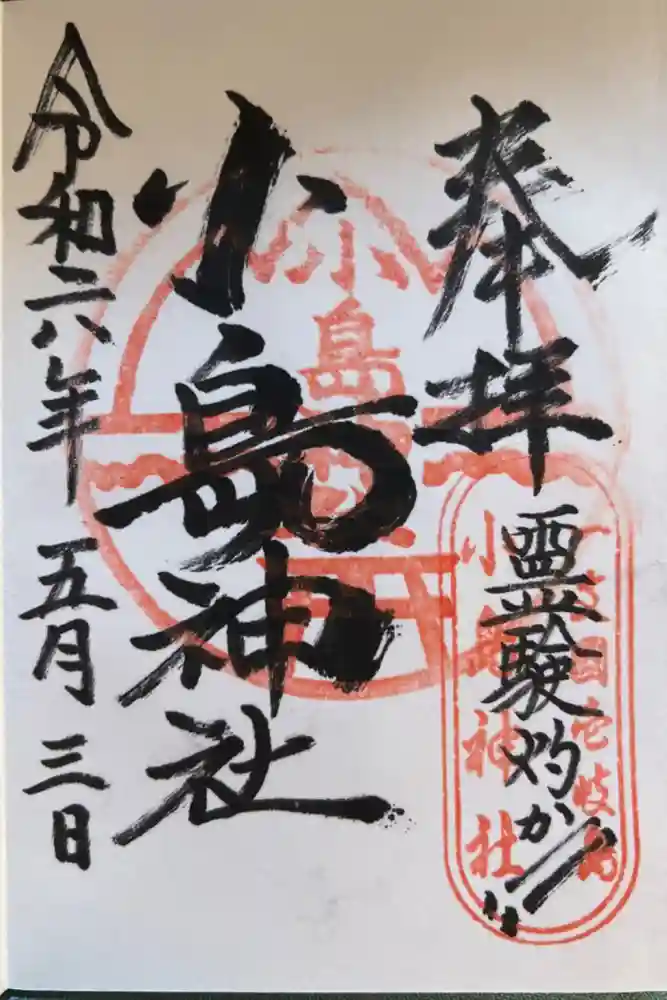 奉拝
霊験灼か
壱岐島
小島神社
小島神社
小島神社
令和六年五月三日